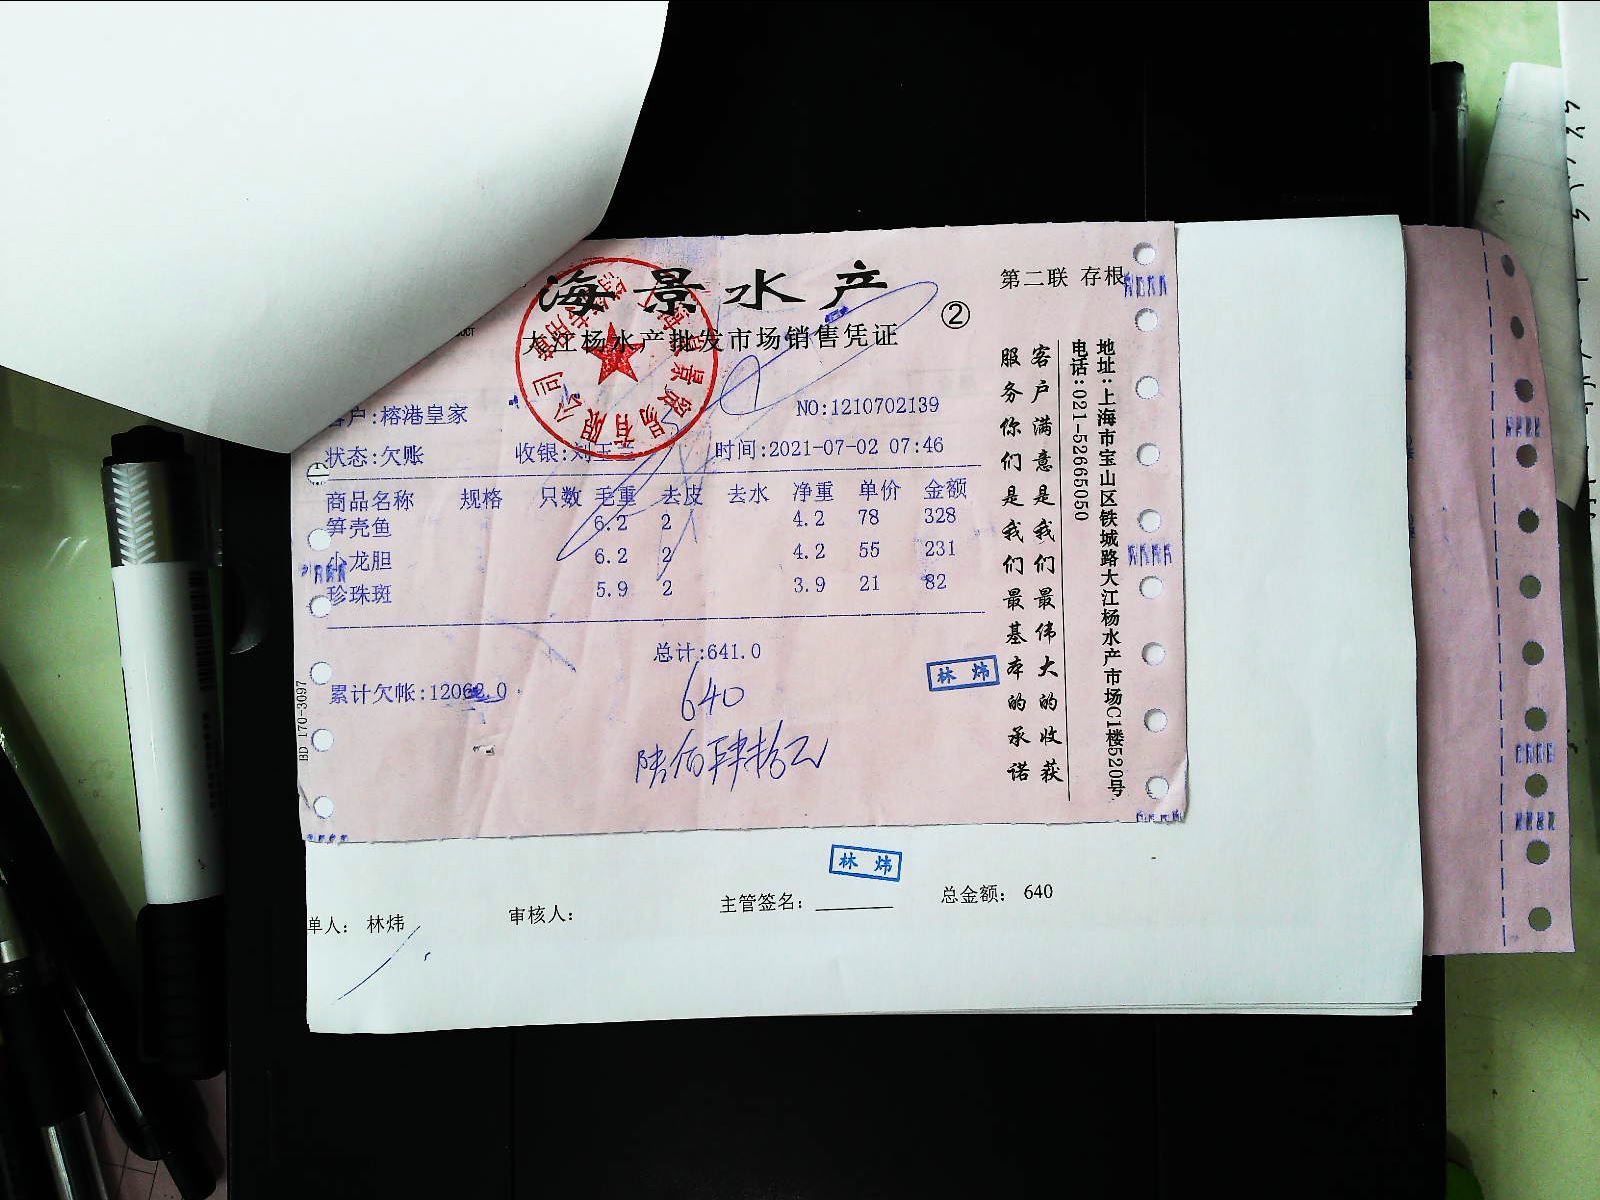 海景水产
第二联 存根
大江杨水产批发市场销售凭证
②
客户:榕港皇家
NO:1210702139
状态:欠账 收银:刘玉兰 时间:2021-07-02 07:46
商品名称 规格 只数 毛重 去皮 去水 净重 单价 金额
笋壳鱼 6.2 2 4.2 78 328
小龙胆 6.2 2 4.2 55 231
珍珠斑 5.9 2 3.9 21 82
总计:641.0
累计欠帐:12062.0
640
陆佰肆拾元
林炜
客户满意是我们最伟大的收获
服务你们是我们最基本的承诺
地址:上海市宝山区铁城路大江杨水产市场C1楼520号
电话:021-52665050
BD 170-3097
林炜
单人: 林炜 审核人: 主管签名: 总金额: 640